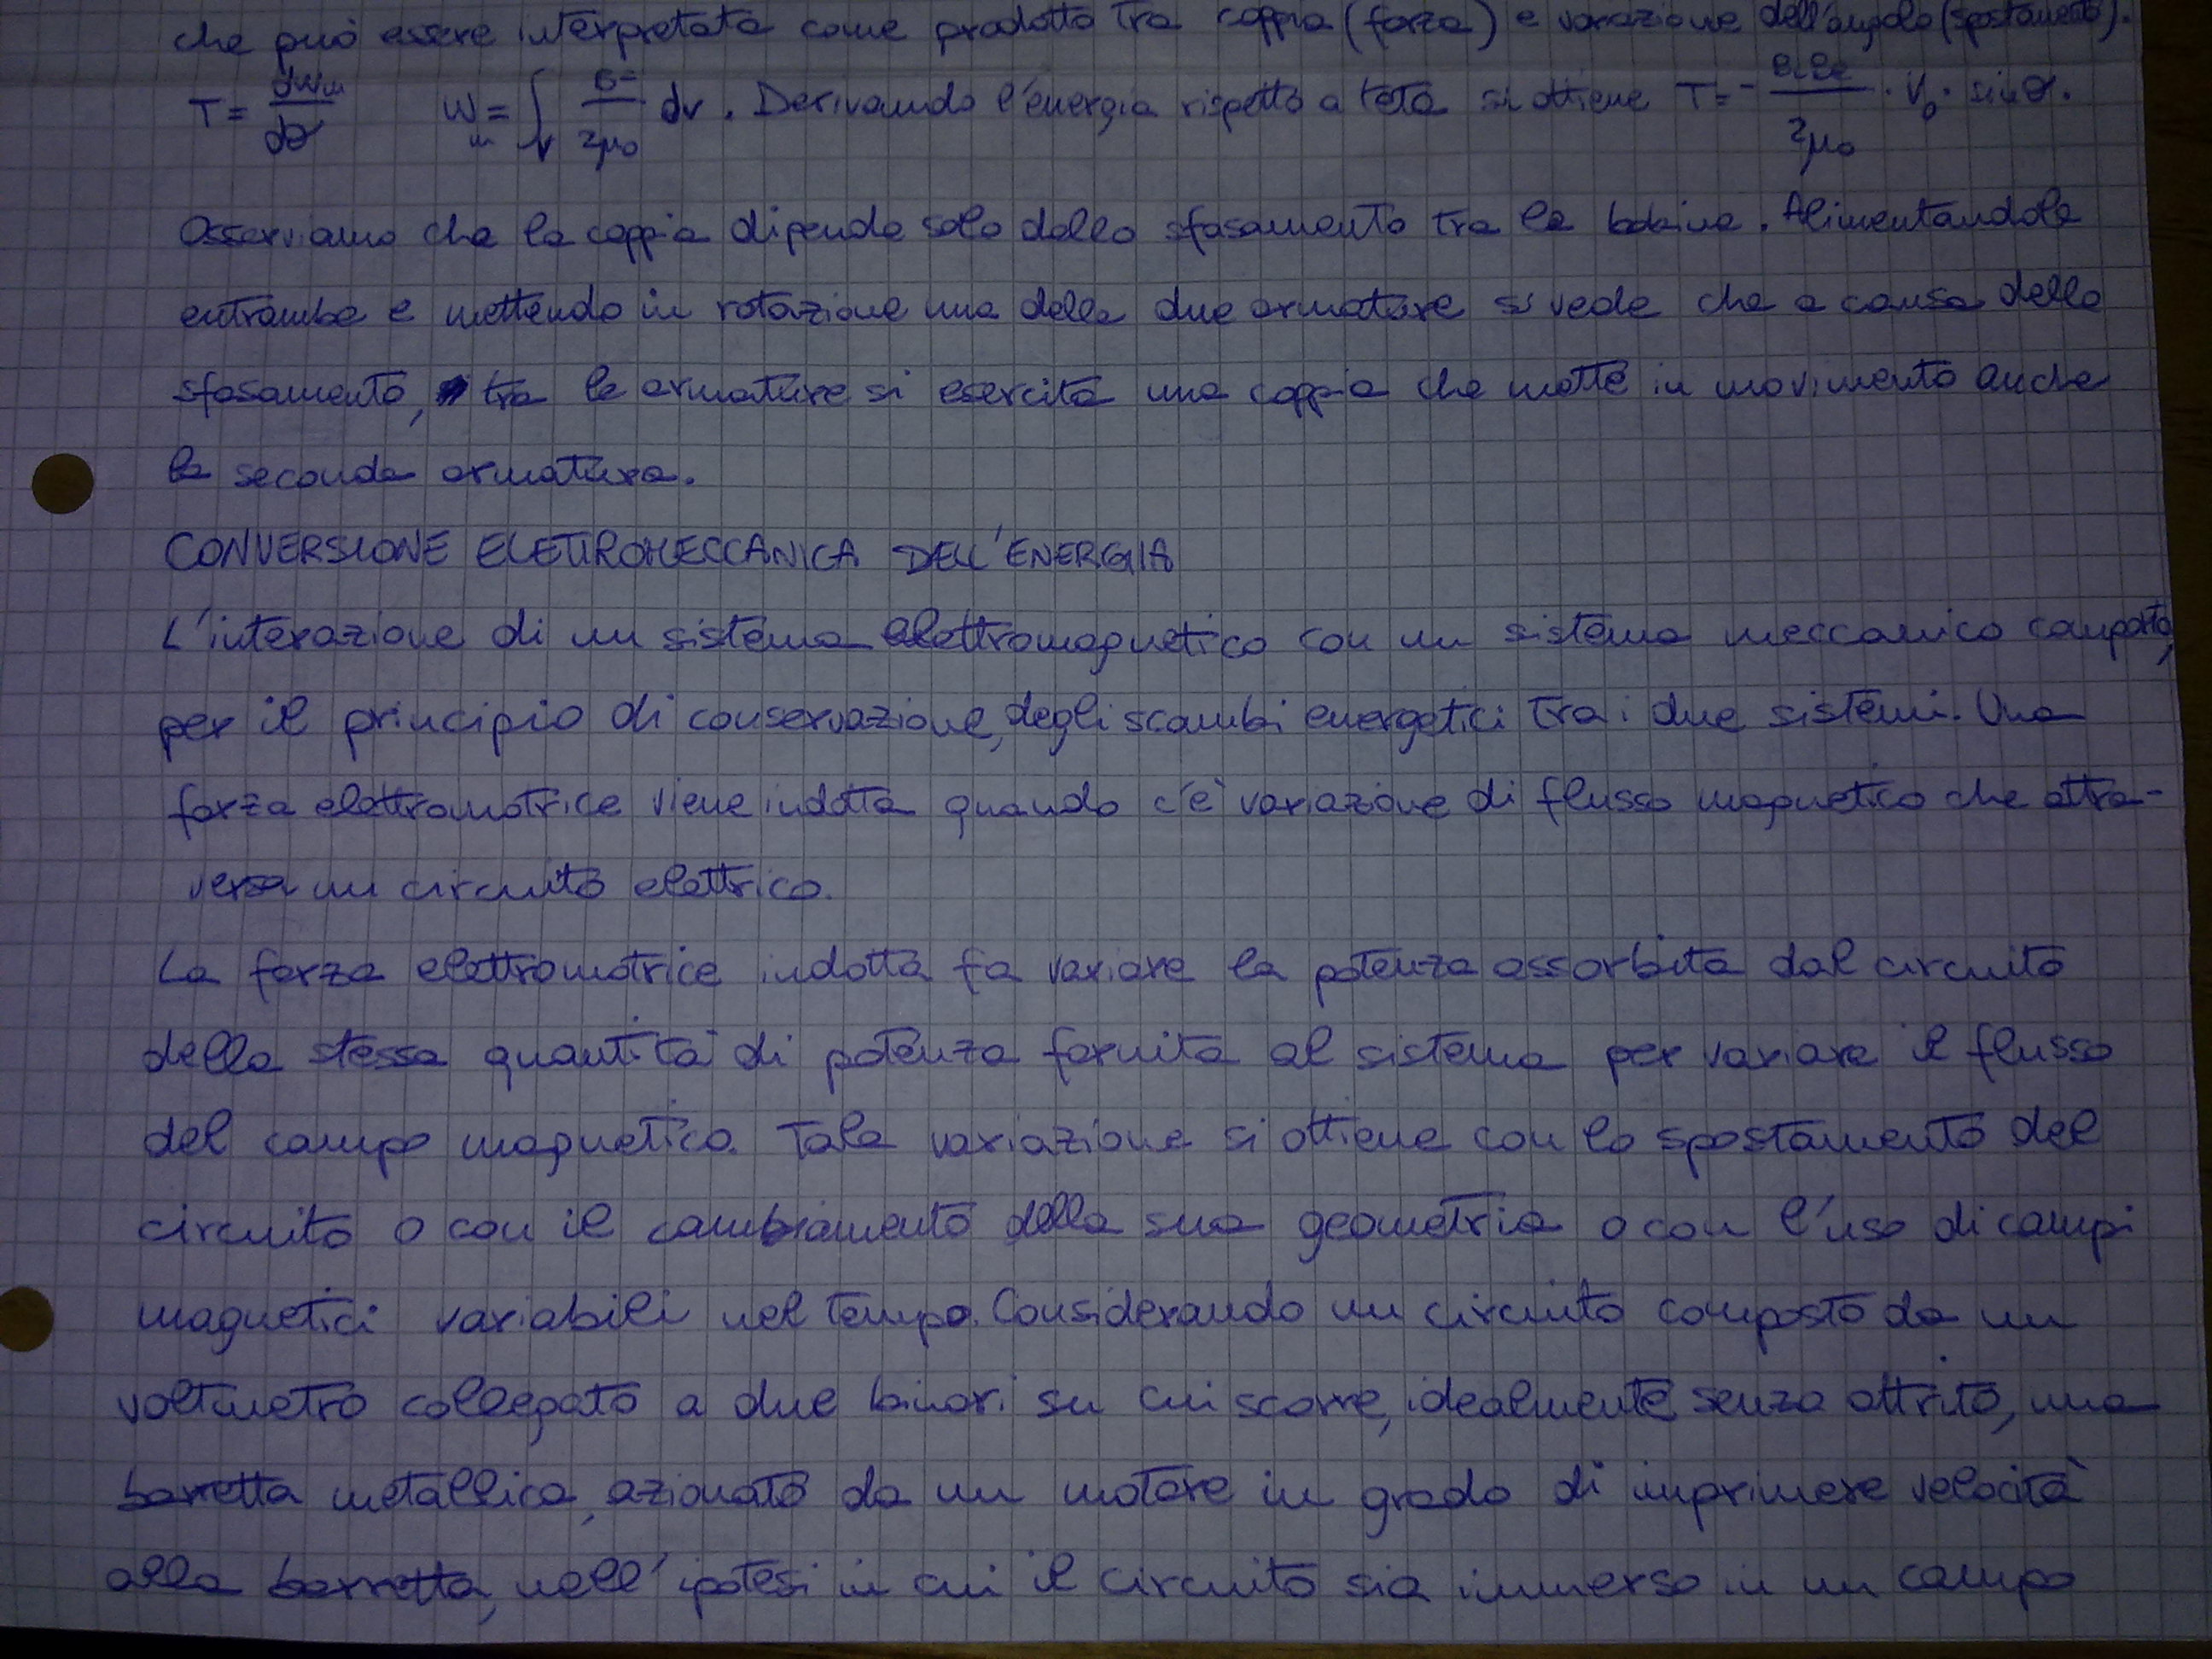 che può essere interpretata come prodotto tra coppia (forza) e variazione dell'angolo (spostamento).
T = dWm/dθ Wm = ∫v B²/2μ₀ dv. Derivando l'energia rispetto a teta si ottiene T = - /2μ₀ · V₀ · sinθ.
Osserviamo che la coppia dipende solo dallo sfasamento tra le bobine. Alimentandole
entrambe e mettendo in rotazione una delle due armature si vede che a causa dello
sfasamento, tra le armature si esercita una coppia che mette in movimento anche
la seconda armatura.
CONVERSIONE ELETTROMECCANICA DELL'ENERGIA
L'interazione di un sistema elettromagnetico con un sistema meccanico comporta,
per il principio di conservazione, degli scambi energetici tra i due sistemi. Una
forza elettromotrice viene indotta quando c'è variazione di flusso magnetico che attra-
versa un circuito elettrico.
La forza elettromotrice indotta fa variare la potenza assorbita dal circuito
della stessa quantità di potenza fornita al sistema per variare il flusso
del campo magnetico. Tale variazione si ottiene con lo spostamento del
circuito o con il cambiamento della sua geometria o con l'uso di campi
magnetici variabili nel tempo. Considerando un circuito composto da un
voltmetro collegato a due binari su cui scorre, idealmente senza attrito, una
barretta metallica, azionato da un motore in grado di imprimere velocità
alla barretta, nell'ipotesi in cui il circuito sia immerso in un campo